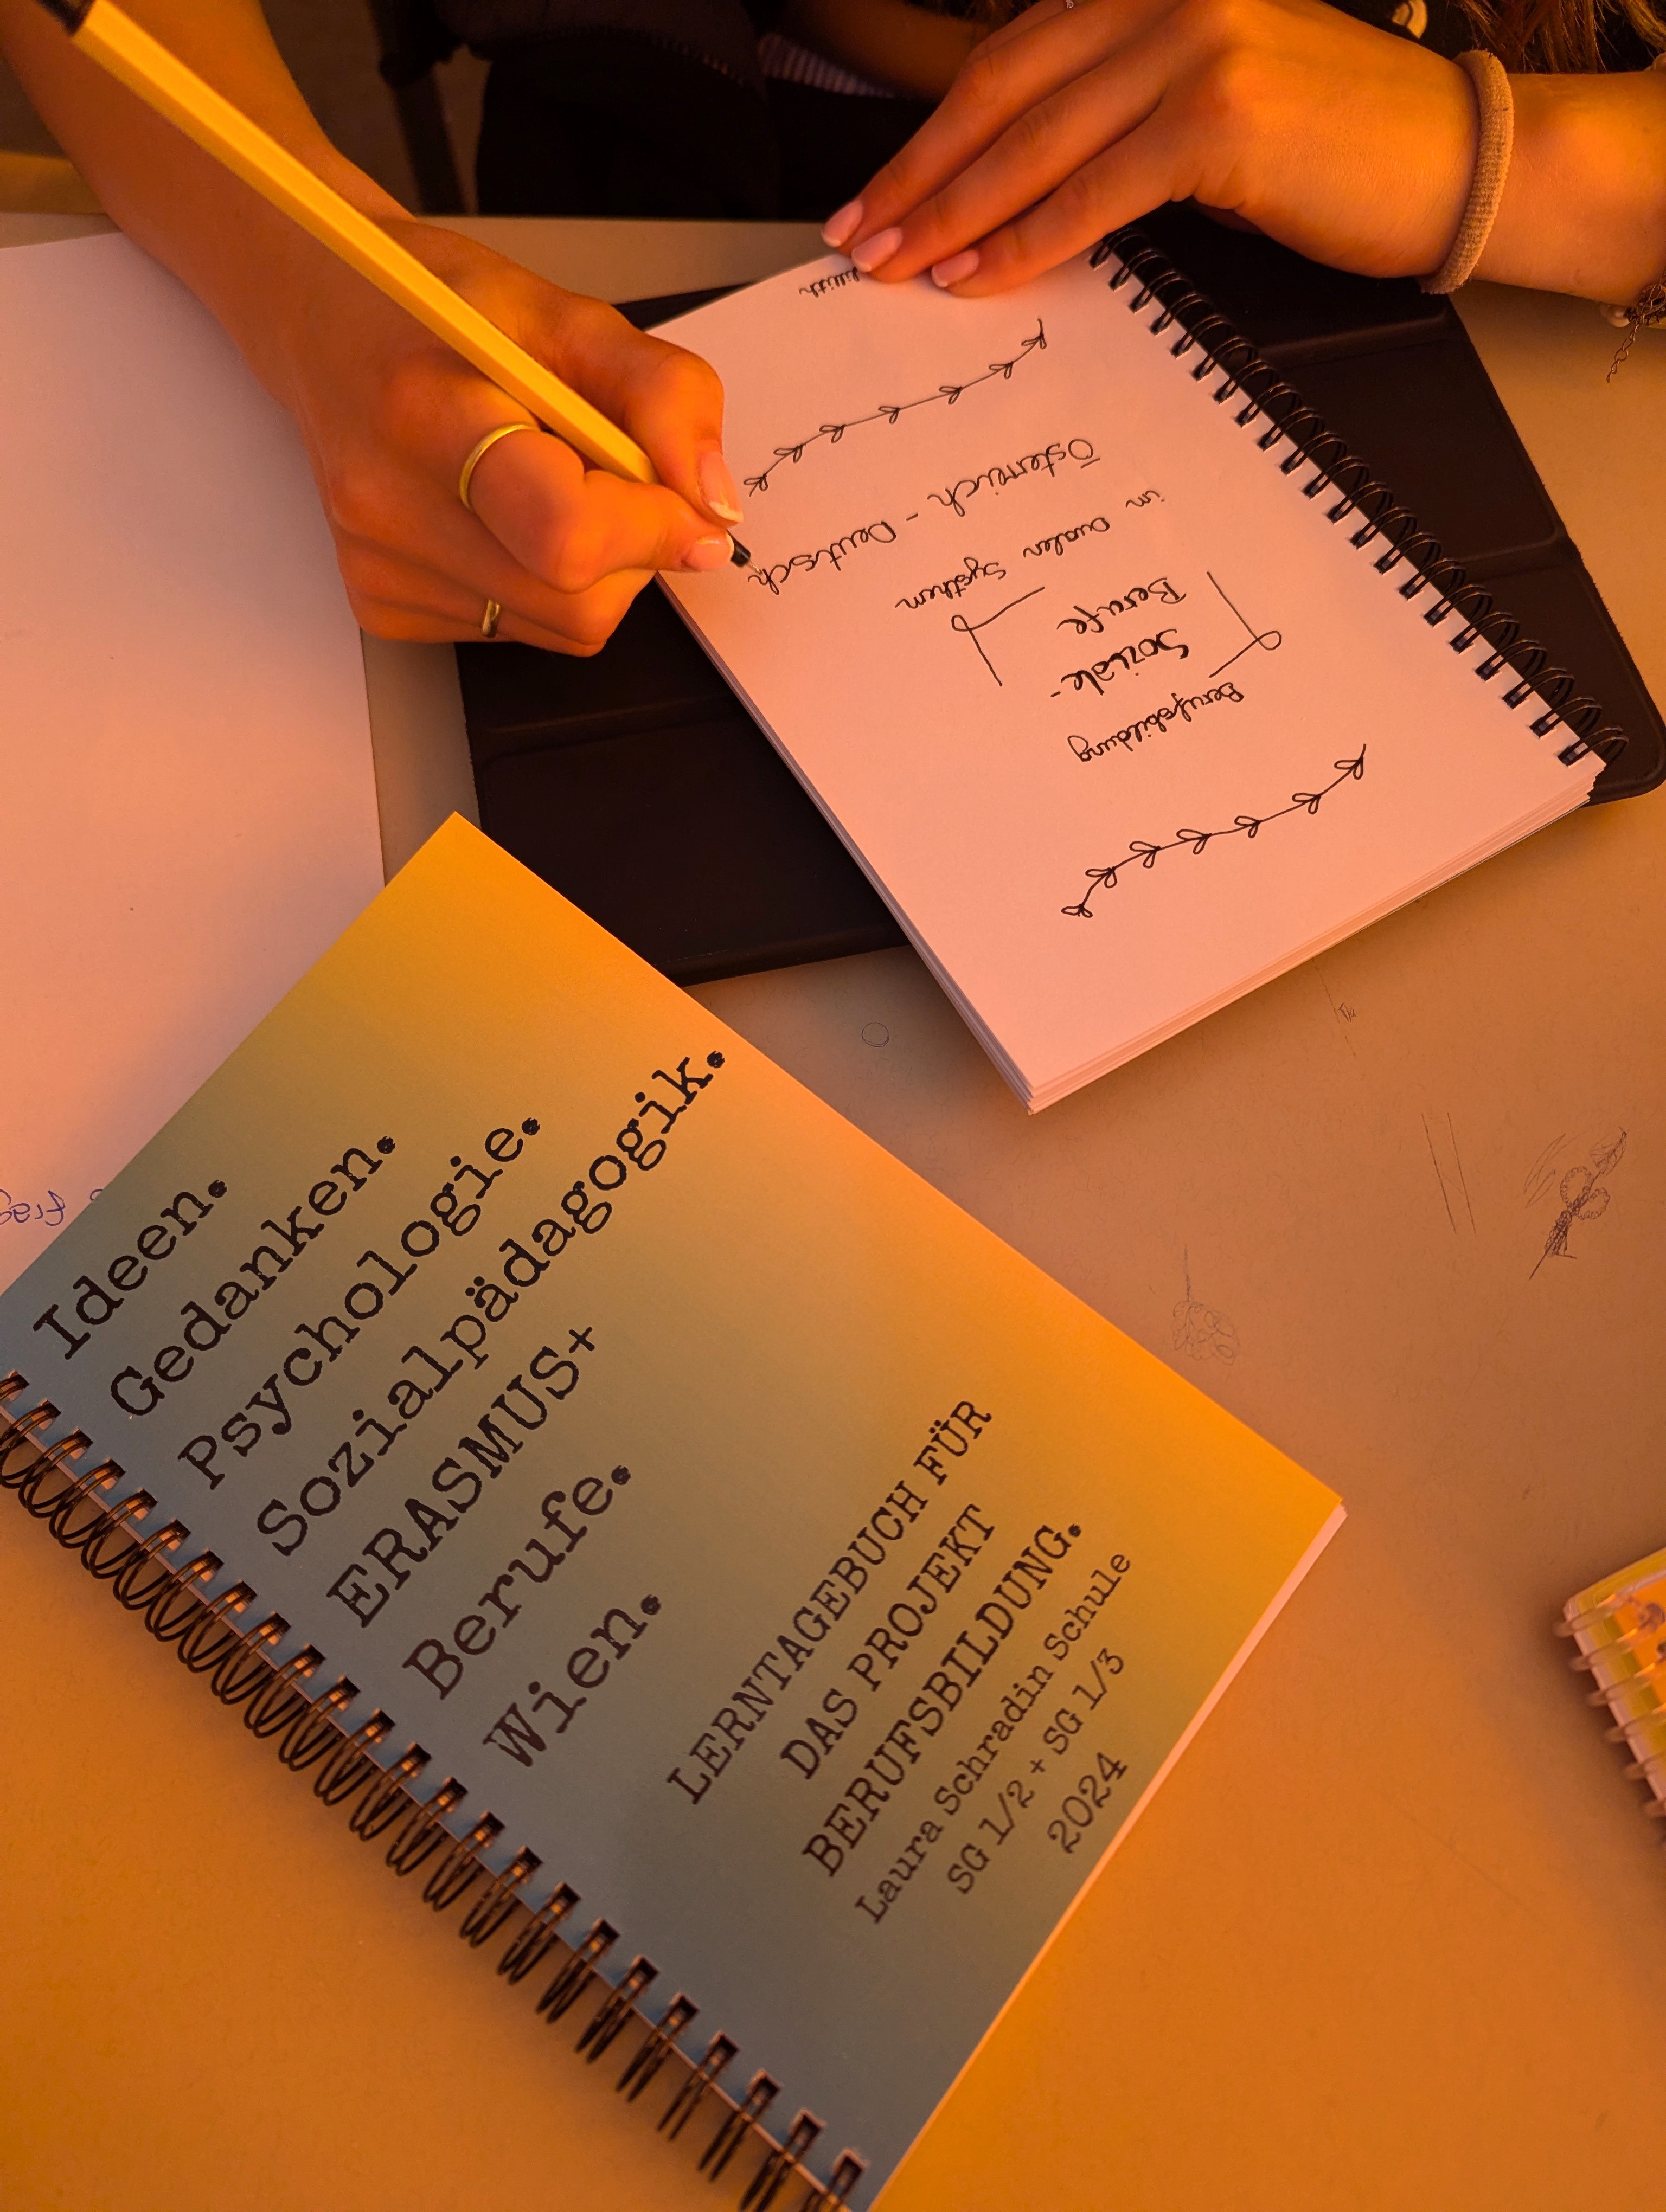 Ideen.
Gedanken.
Psychologie.
Sozialpädagogik.
ERASMUS+
Berufe.
Wien.
LERNTAGEBUCH FÜR
DAS PROJEKT
BERUFSBILDUNG.
Laura Schradin Schule
SG 1/2 + SG 1/3
2024
Berufsbildung
Soziale-
Berufe
im Dualen Systhem
Österreich - Deutsch
Lillith